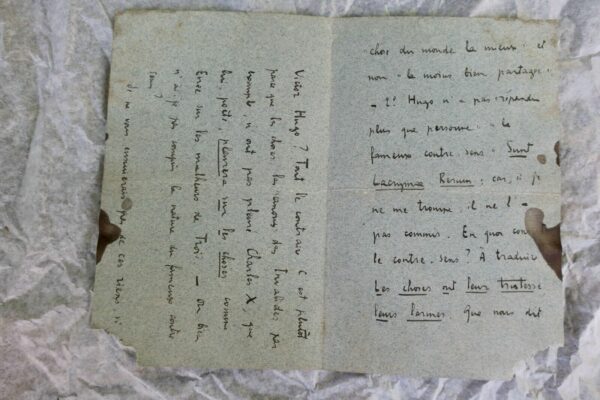 chose du monde la mieux - et
non - la moins bien partagée.
- Hugo n'a pas répandu
plus que personne - le
fameux contre-sens : Sunt
Lacrymae Rerum : car, si je
ne me trompe, il ne l'
pas commis. En quoi con
le contre-sens ? A traduire
Les choses ont leur tristesse
leurs larmes. Que nous dit
Victor Hugo ? Tout le contraire C'est plutôt
parce que les choses, les canons des Invalides par
exemple, n'ont pas pleuré Charles X, que
lui, poète, pleurera sur les choses comme
Enée sur les malheurs de Troie — ou bien
n'ai-je pas compris la nature du fameux contre
sens ?
ne vous ennuierais pas de ces riens si